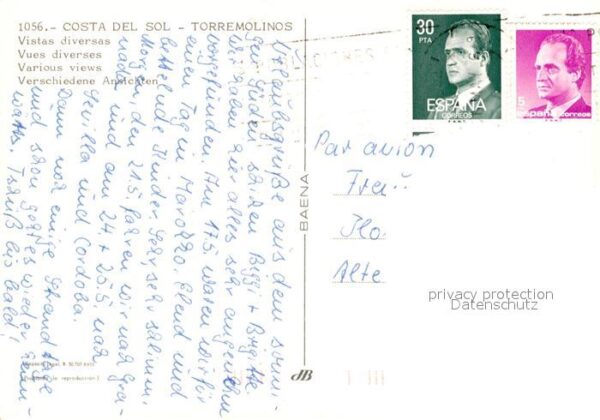 1056.- COSTA DEL SOL - TORREMOLINOS
Vistas diversas
Vues diverses
Various views
Verschiedene Ansichten
30
PTA
ESPAÑA
CORREOS
5
España correos
Urlaubsgrüße aus dem sonni-
gen Süden senden Biggi + Brigitte.
Wir haben hier alles sehr angenehm
vorgefunden. Am 17.5. waren wir für
einen Tag in Marokko. Elend und
bettelnde Kinder, sehr sehr schlimm.
Morgen, den 21.5. fahren wir nach Gra-
nada und am 24. + 25.5. nach
Sevilla und Cordoba.
Dann noch einige Strandtage
und schon geht es wieder heim-
wärts. Tschüß bis bald,
BAENA
Par avion
Frau
Ilo
Alte
privacy protection
Datenschutz
dB